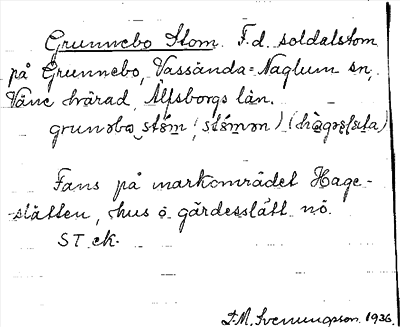 Grunnebo Stom. F.d. soldatstom
på Grunnebo, Vassända-Naglum sn,
Väne härad, Älfsborgs län.
grunəbo stóm, stómən) (hàgəslɛta)
Fans på markområdet Hage-
slätten, hus o gärdesslått nö.
ST ck.
D.M. Svenungsson. 1936.